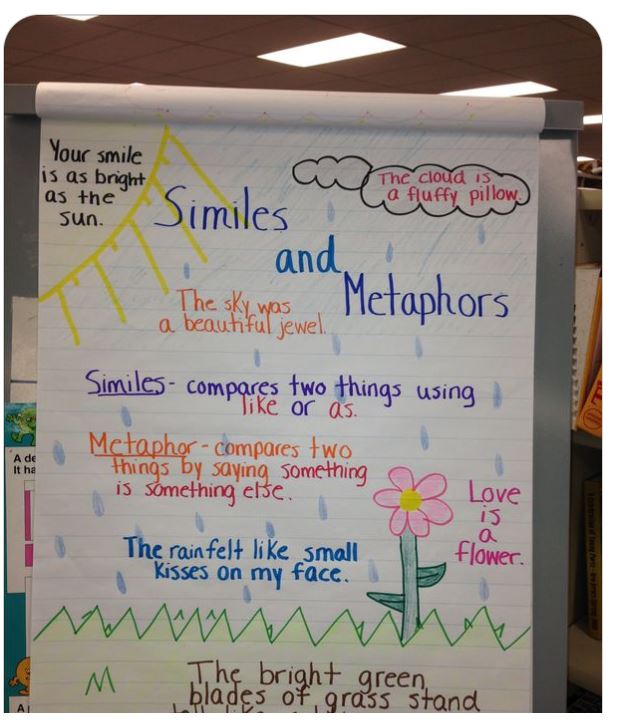 Your smile
is as bright
as the
sun.
The cloud is
a fluffy pillow.
Similes
and
Metaphors
The sky was
a beautiful jewel.
Similes- compares two things using
like or as.
Metaphor-compares two
things by saying something
is something else.
Love
is
a
flower.
The rain felt like small
kisses on my face.
The bright green
blades of grass stand
A de
It ha